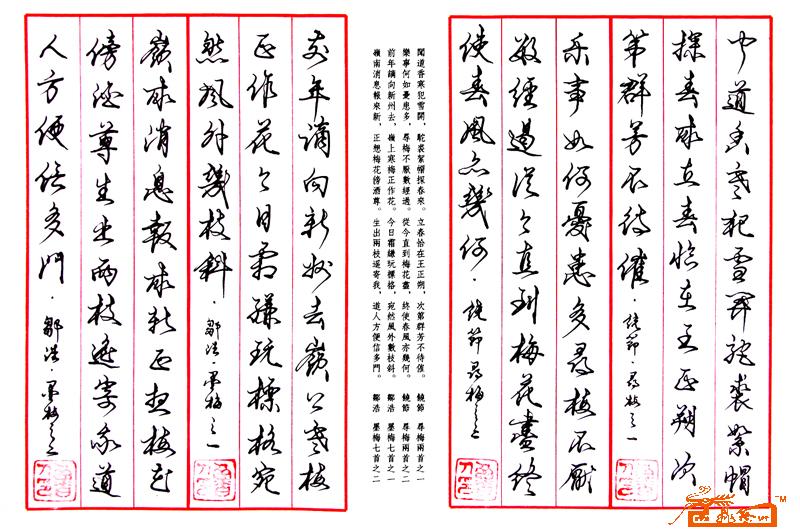 聞道香寒犯雪開駝裘絮帽
探春來立春恰在王正朔次
第群芳不待催·饒節·尋梅之一
乐事如何憂患多尋梅不厭
數經過從今直到梅花盡終
使春風亦幾何·饒節尋梅之二
聞道香寒犯雪開，駝裘絮帽探春來。立春恰在王正朔，次第群芳不待催。 饒節 尋梅兩首之一
樂事何如憂患多，尋梅不厭數經過。從今直到梅花盡，終使春風亦幾何。 饒節 尋梅兩首之二
前年謫向新州去，嶺上寒梅正作花。今日霜縑玩標格，宛然風外數枝斜。 鄒浩 墨梅七首之一
嶺南消息報來新，正想梅花傍酒尊。生出兩枝遙寄我，道人方便信多門。 鄒浩 墨梅七首之二
前年謫向新州去嶺上寒梅
正作花今日霜縑玩標格宛
然風外幾枝斜·鄒浩·墨梅之一
嶺南消息報來新正想梅花
傍酒尊生出兩枝遙寄我道
人方便信多門·鄒浩·墨梅之二